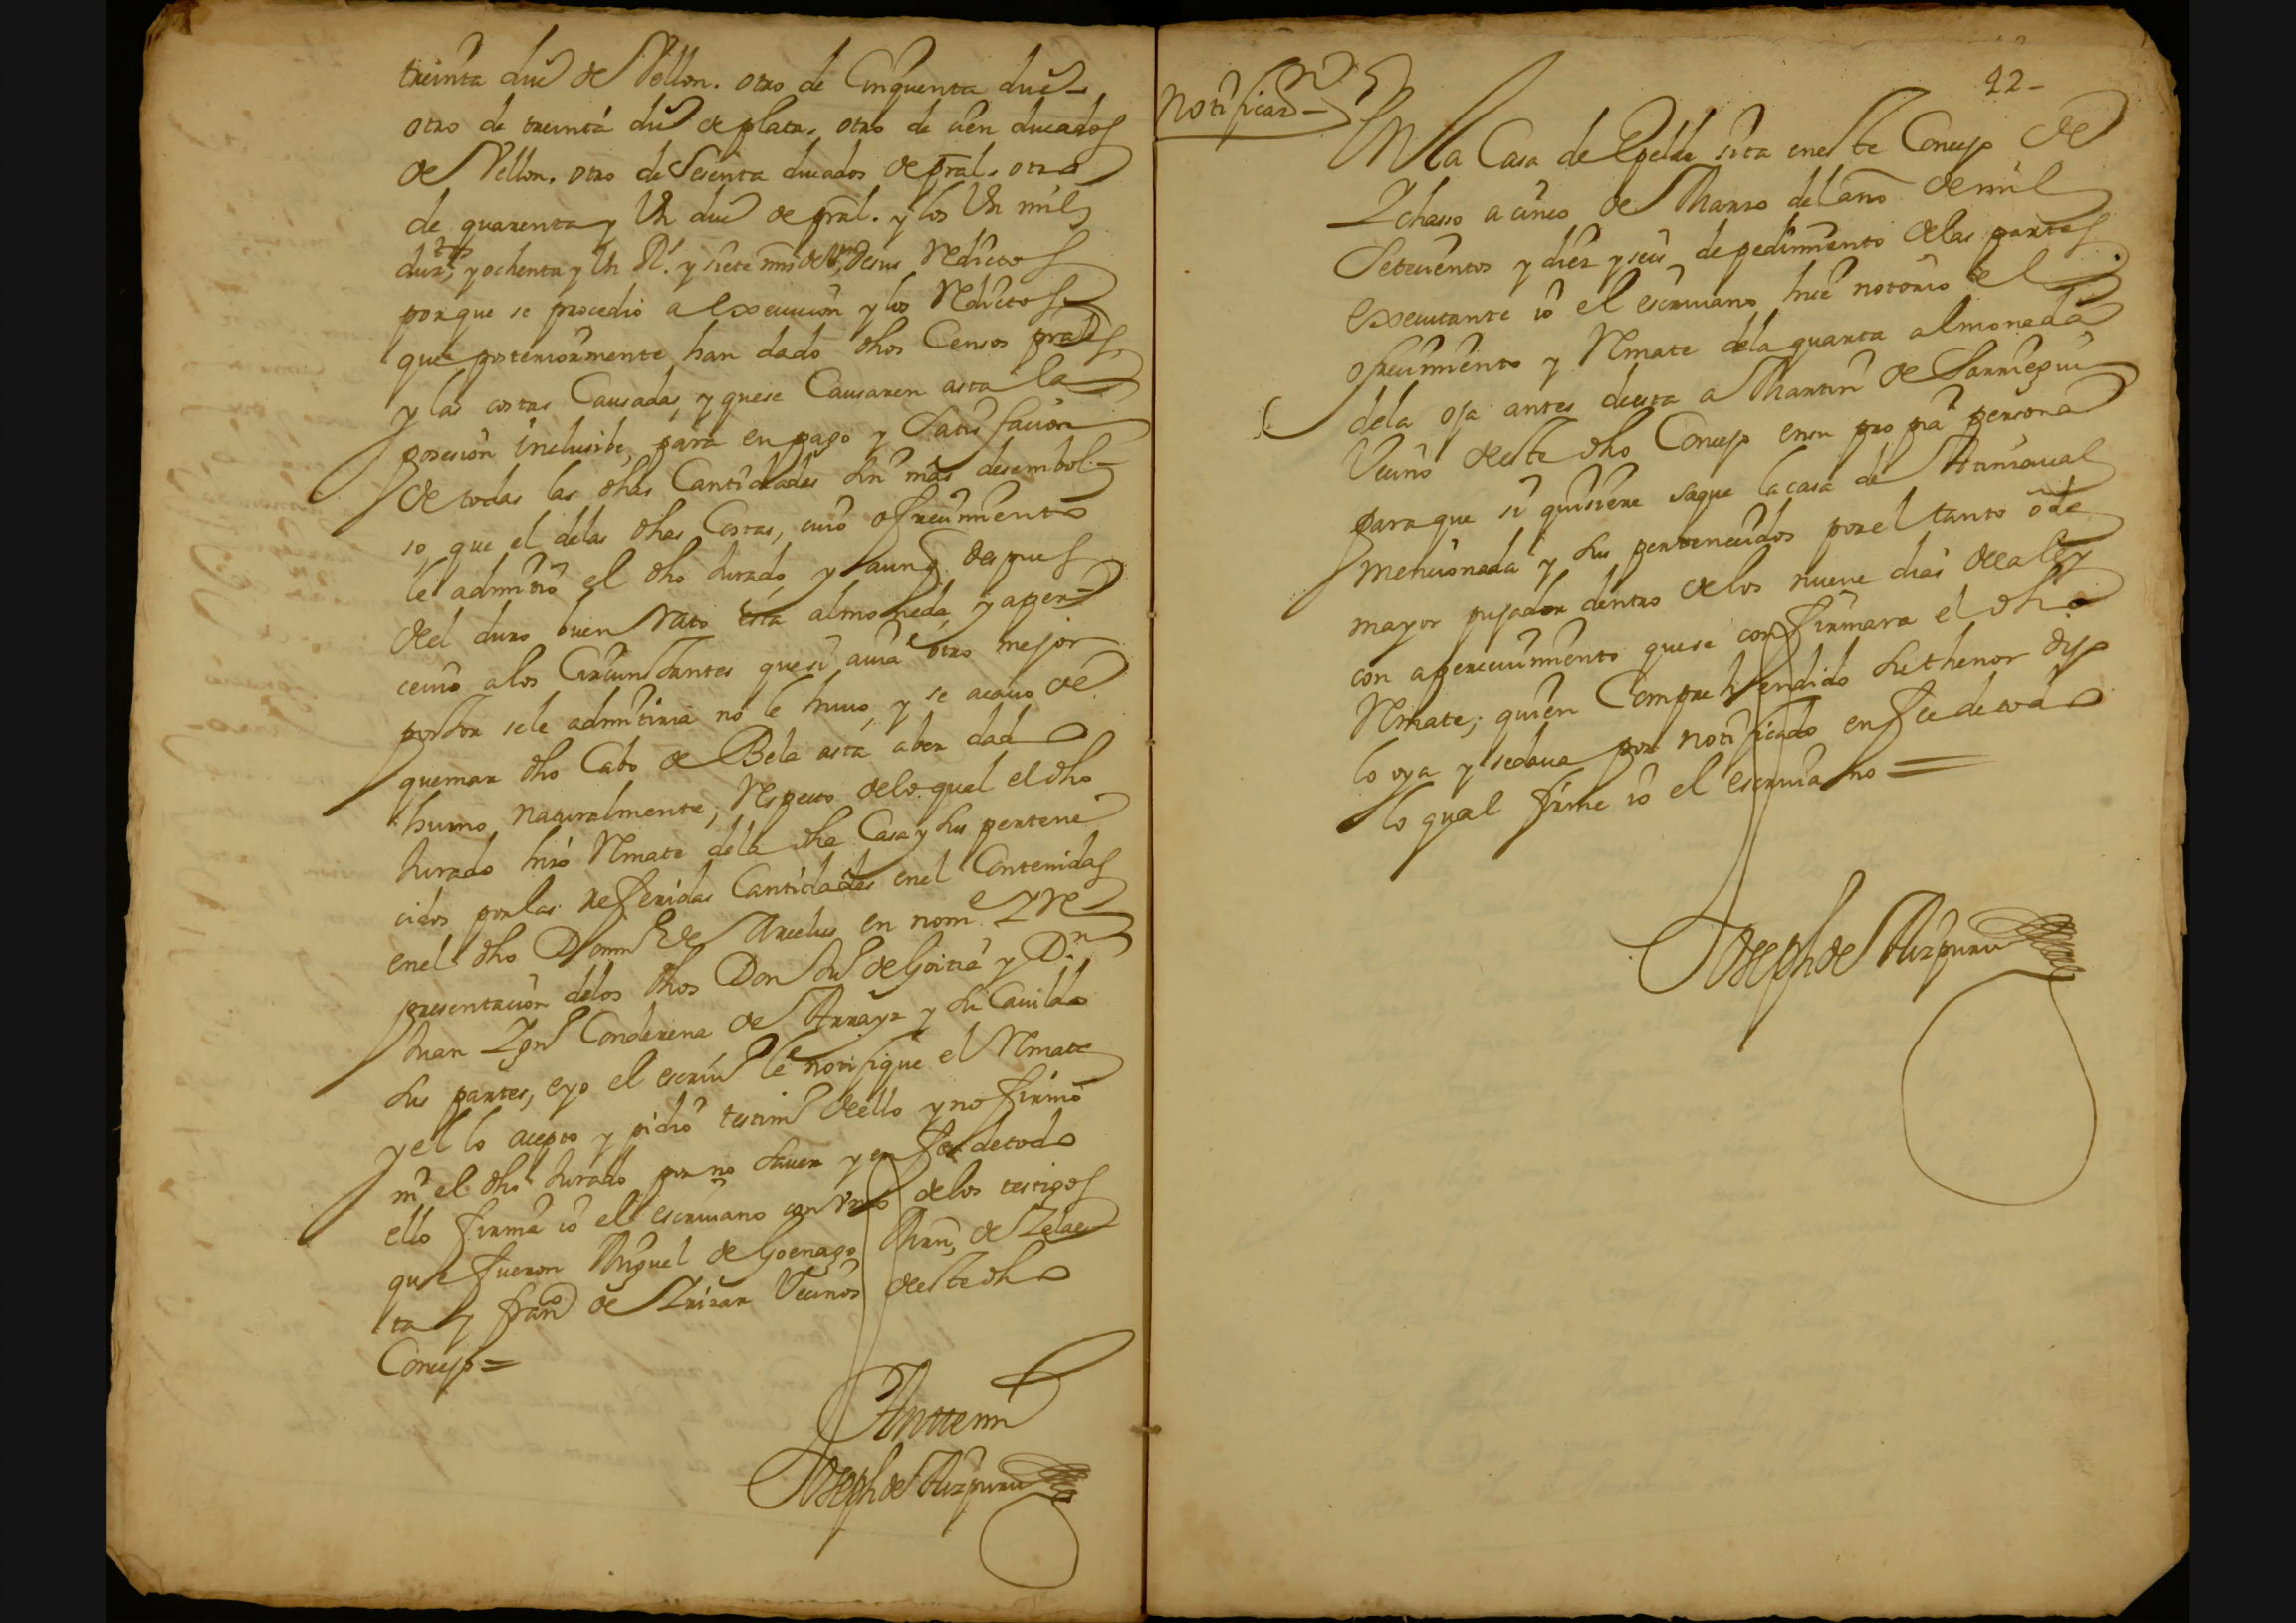 treinta duc de Vellon. otro de Cinquenta duc
otro de treinta du de plata, otro de cien ducados
de Vellon. otro de Sesenta ducados de pral. otro
de quarenta y Un duc de pral. y los Un mil
y ochenta y Un Rs. y siete ms de Vn de sus Reditos
por que se procedio a execucion y los Reditos
que posteriormente han dado dhos Censos prales
y las costas Causadas, y que se Causaren asta la
posesion inclusibe, para en pago y Satisfacion
de todas las dhas Cantidades sin mas desembol-
so, que el delas dhas Costas, cuio ofrecimiento
le admitio el dho Jurado, y aunq despues
del duro buen rato esta almoneda, y aper-
ceuio alos Circunstantes que si auia otro mejor
postor sele admitiria no le huuo, y se acauo de
quemar dho Cabo de Bela asta aber dad
humo naturalmente, Respecto delo qual el dho
Jurado hizo Rmate dela dha Casa y sus pertene
cidos por las refferidas Cantidades enel Contenidas
enel dho Domin de Arcelus en nome I Re
presentacion delos dhos Don de Goitia y Dn
Juan Ign Conderena de Arraya y su Cauildo
sus partes, e yo el escriu le notifique el Rmate
y el lo acepto y pidio testim dello y no firmo
ni el dho Jurado por no sauer y en fee de todo
ello firme io el escriuano con Vno delos testigos
que fueron Miguel de Goenaga Mrn, de Zelae
ta y Franco de Irizar Vecinos deste dho
Concejo=
Antte mi
Joseph de Aizpuru
22-
Notificaz-
En la Casa de Epelde sita en este Concejo de
Ichasso a cinco de Marzo del año de mil
Setecientos y diez y seis de pedimiento delas partes
executante io el escriuano hice notorio el
ofrecimiento y Rmate dela quarta almoneda
dela oja antes desta a Martin de Sarriegui
Vecino deste dho Concejo en su propia persona
para que si quisiere saque la casa de
mencionada y sus pertenecidos por el tanto ô de
mayor pujador dentro delos nueve dias dela ley
con aperceuimiento que se confirmara el dho
Rmate; quien Comprehendido su thenor dijo
lo oya y sedaua por notificado en fee de todo
lo qual firme io el escriuano =
Joseph de Aizpuru